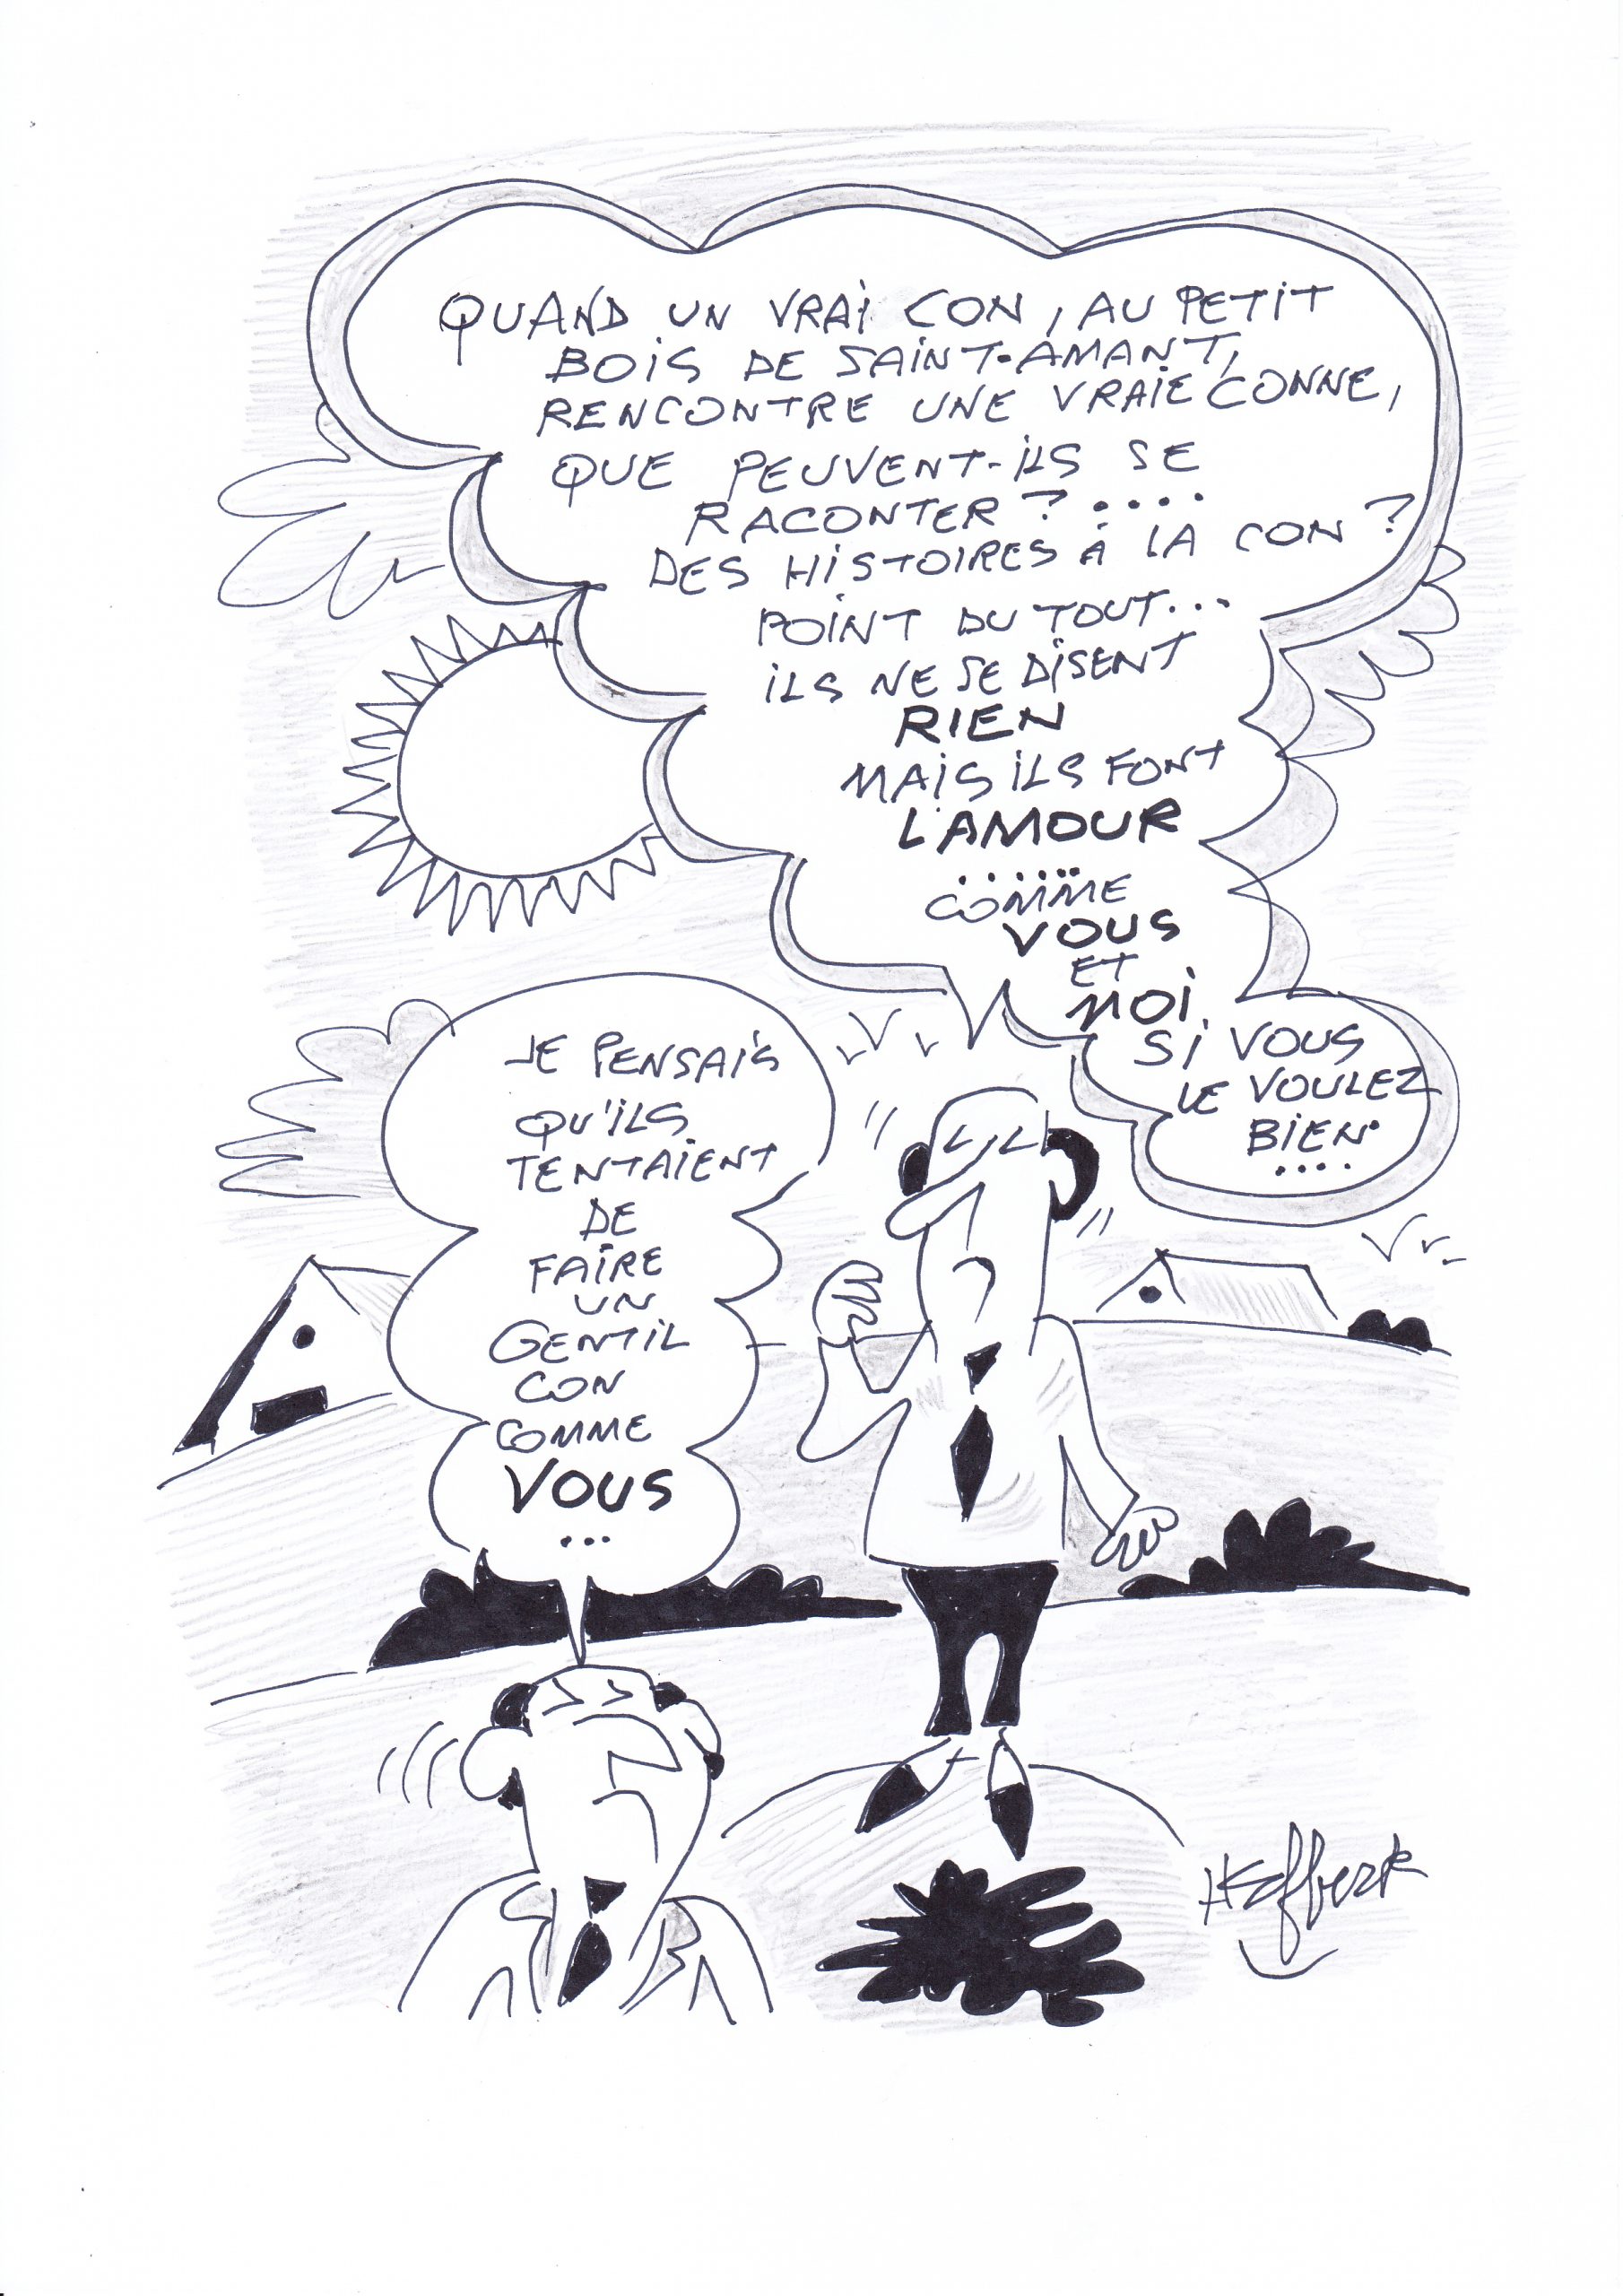 QUAND UN VRAI CON, AU PETIT
BOIS DE SAINT-AMANT,
RENCONTRE UNE VRAIE CONNE,
QUE PEUVENT-ILS SE
RACONTER ?....
DES HISTOIRES À LA CON ?
POINT DU TOUT...
ILS NE SE DISENT
RIEN
MAIS ILS FONT
L'AMOUR
......
COMME
VOUS
ET
MOI
SI VOUS
LE VOULEZ
BIEN.
....
JE PENSAIS
QU'ILS
TENTAIENT
DE
FAIRE
UN
GENTIL
CON
COMME
VOUS
...